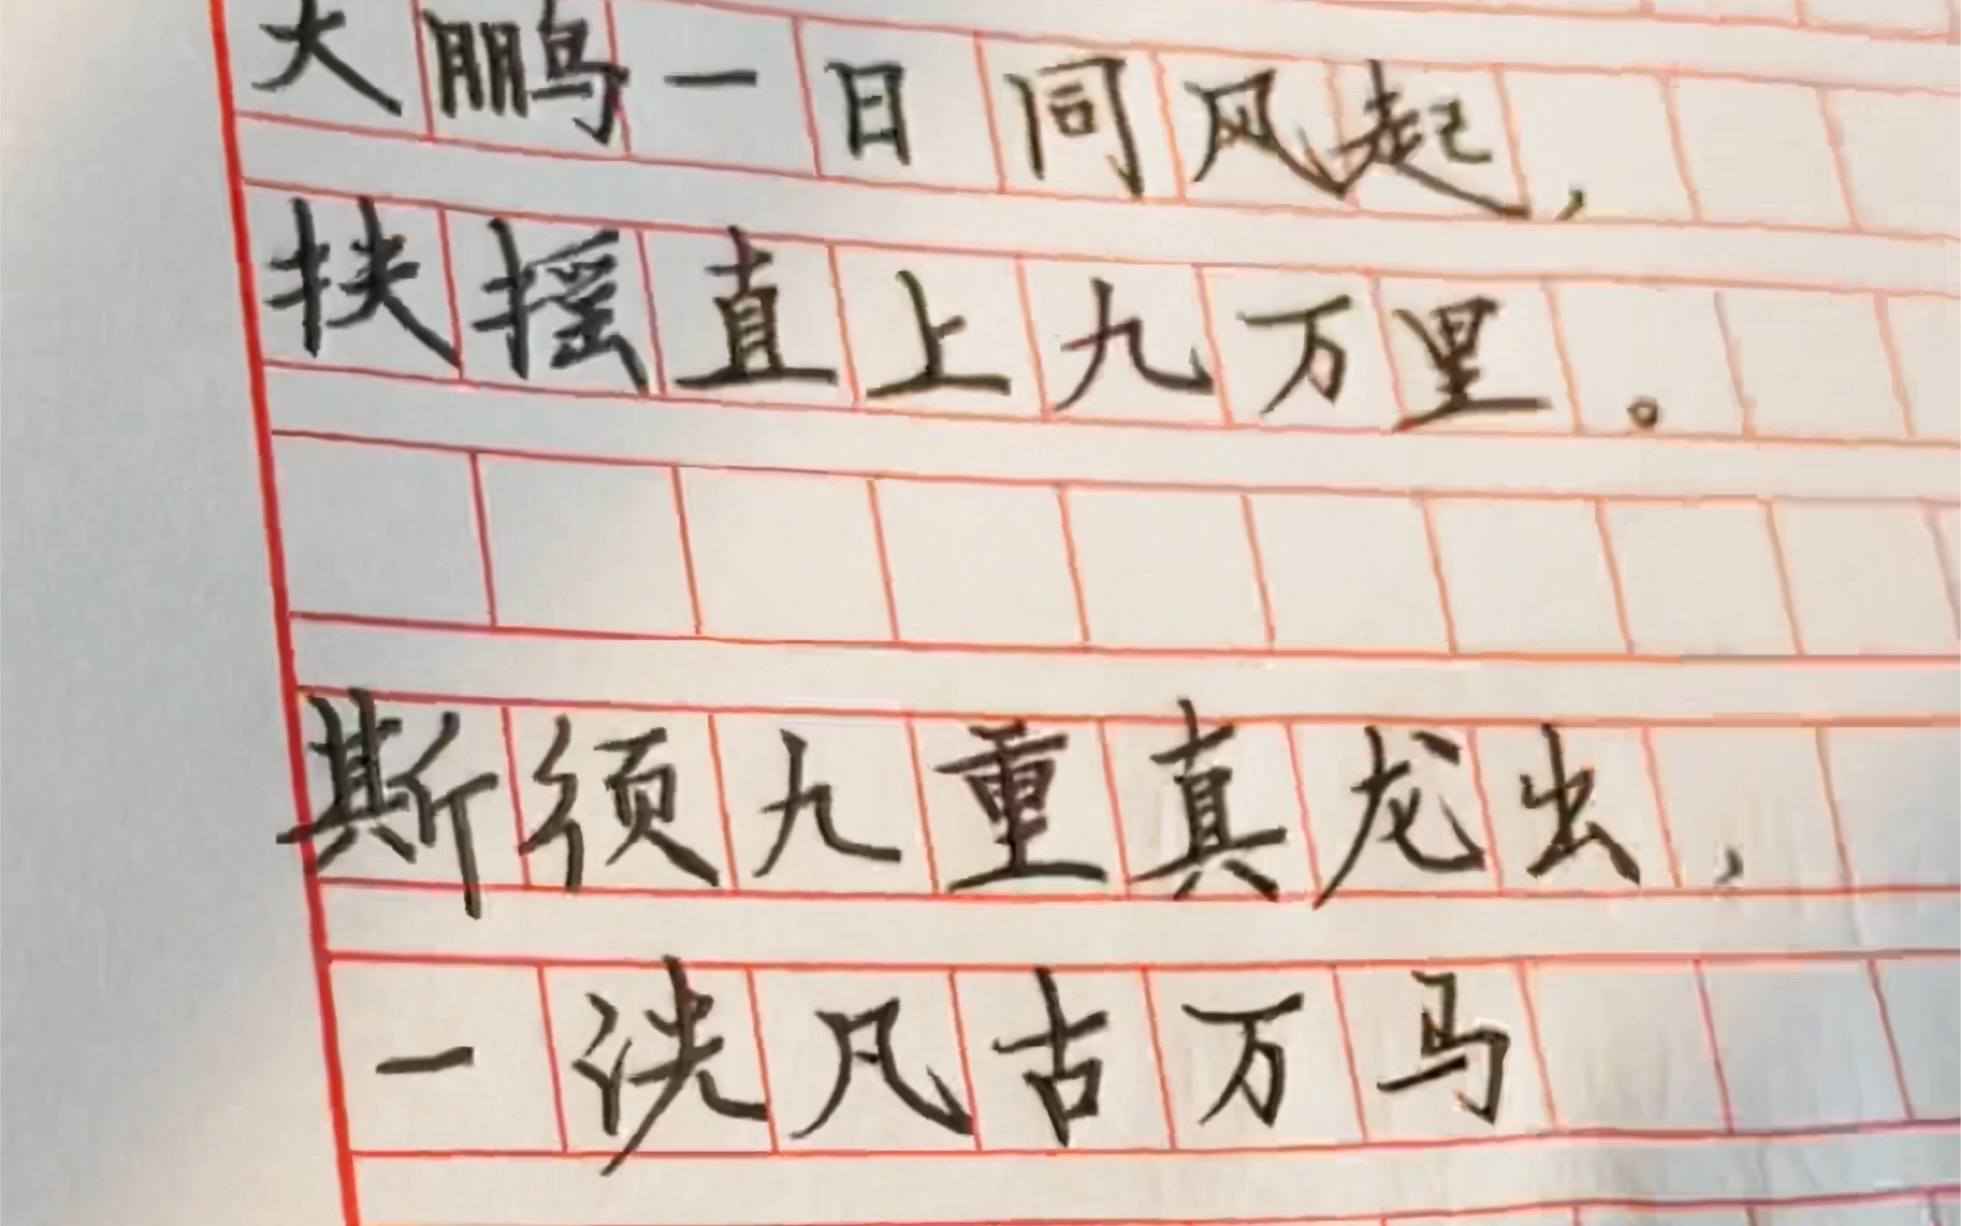 大鹏一日同风起,
扶摇直上九万里。
斯须九重真龙出,
一洗凡古万马